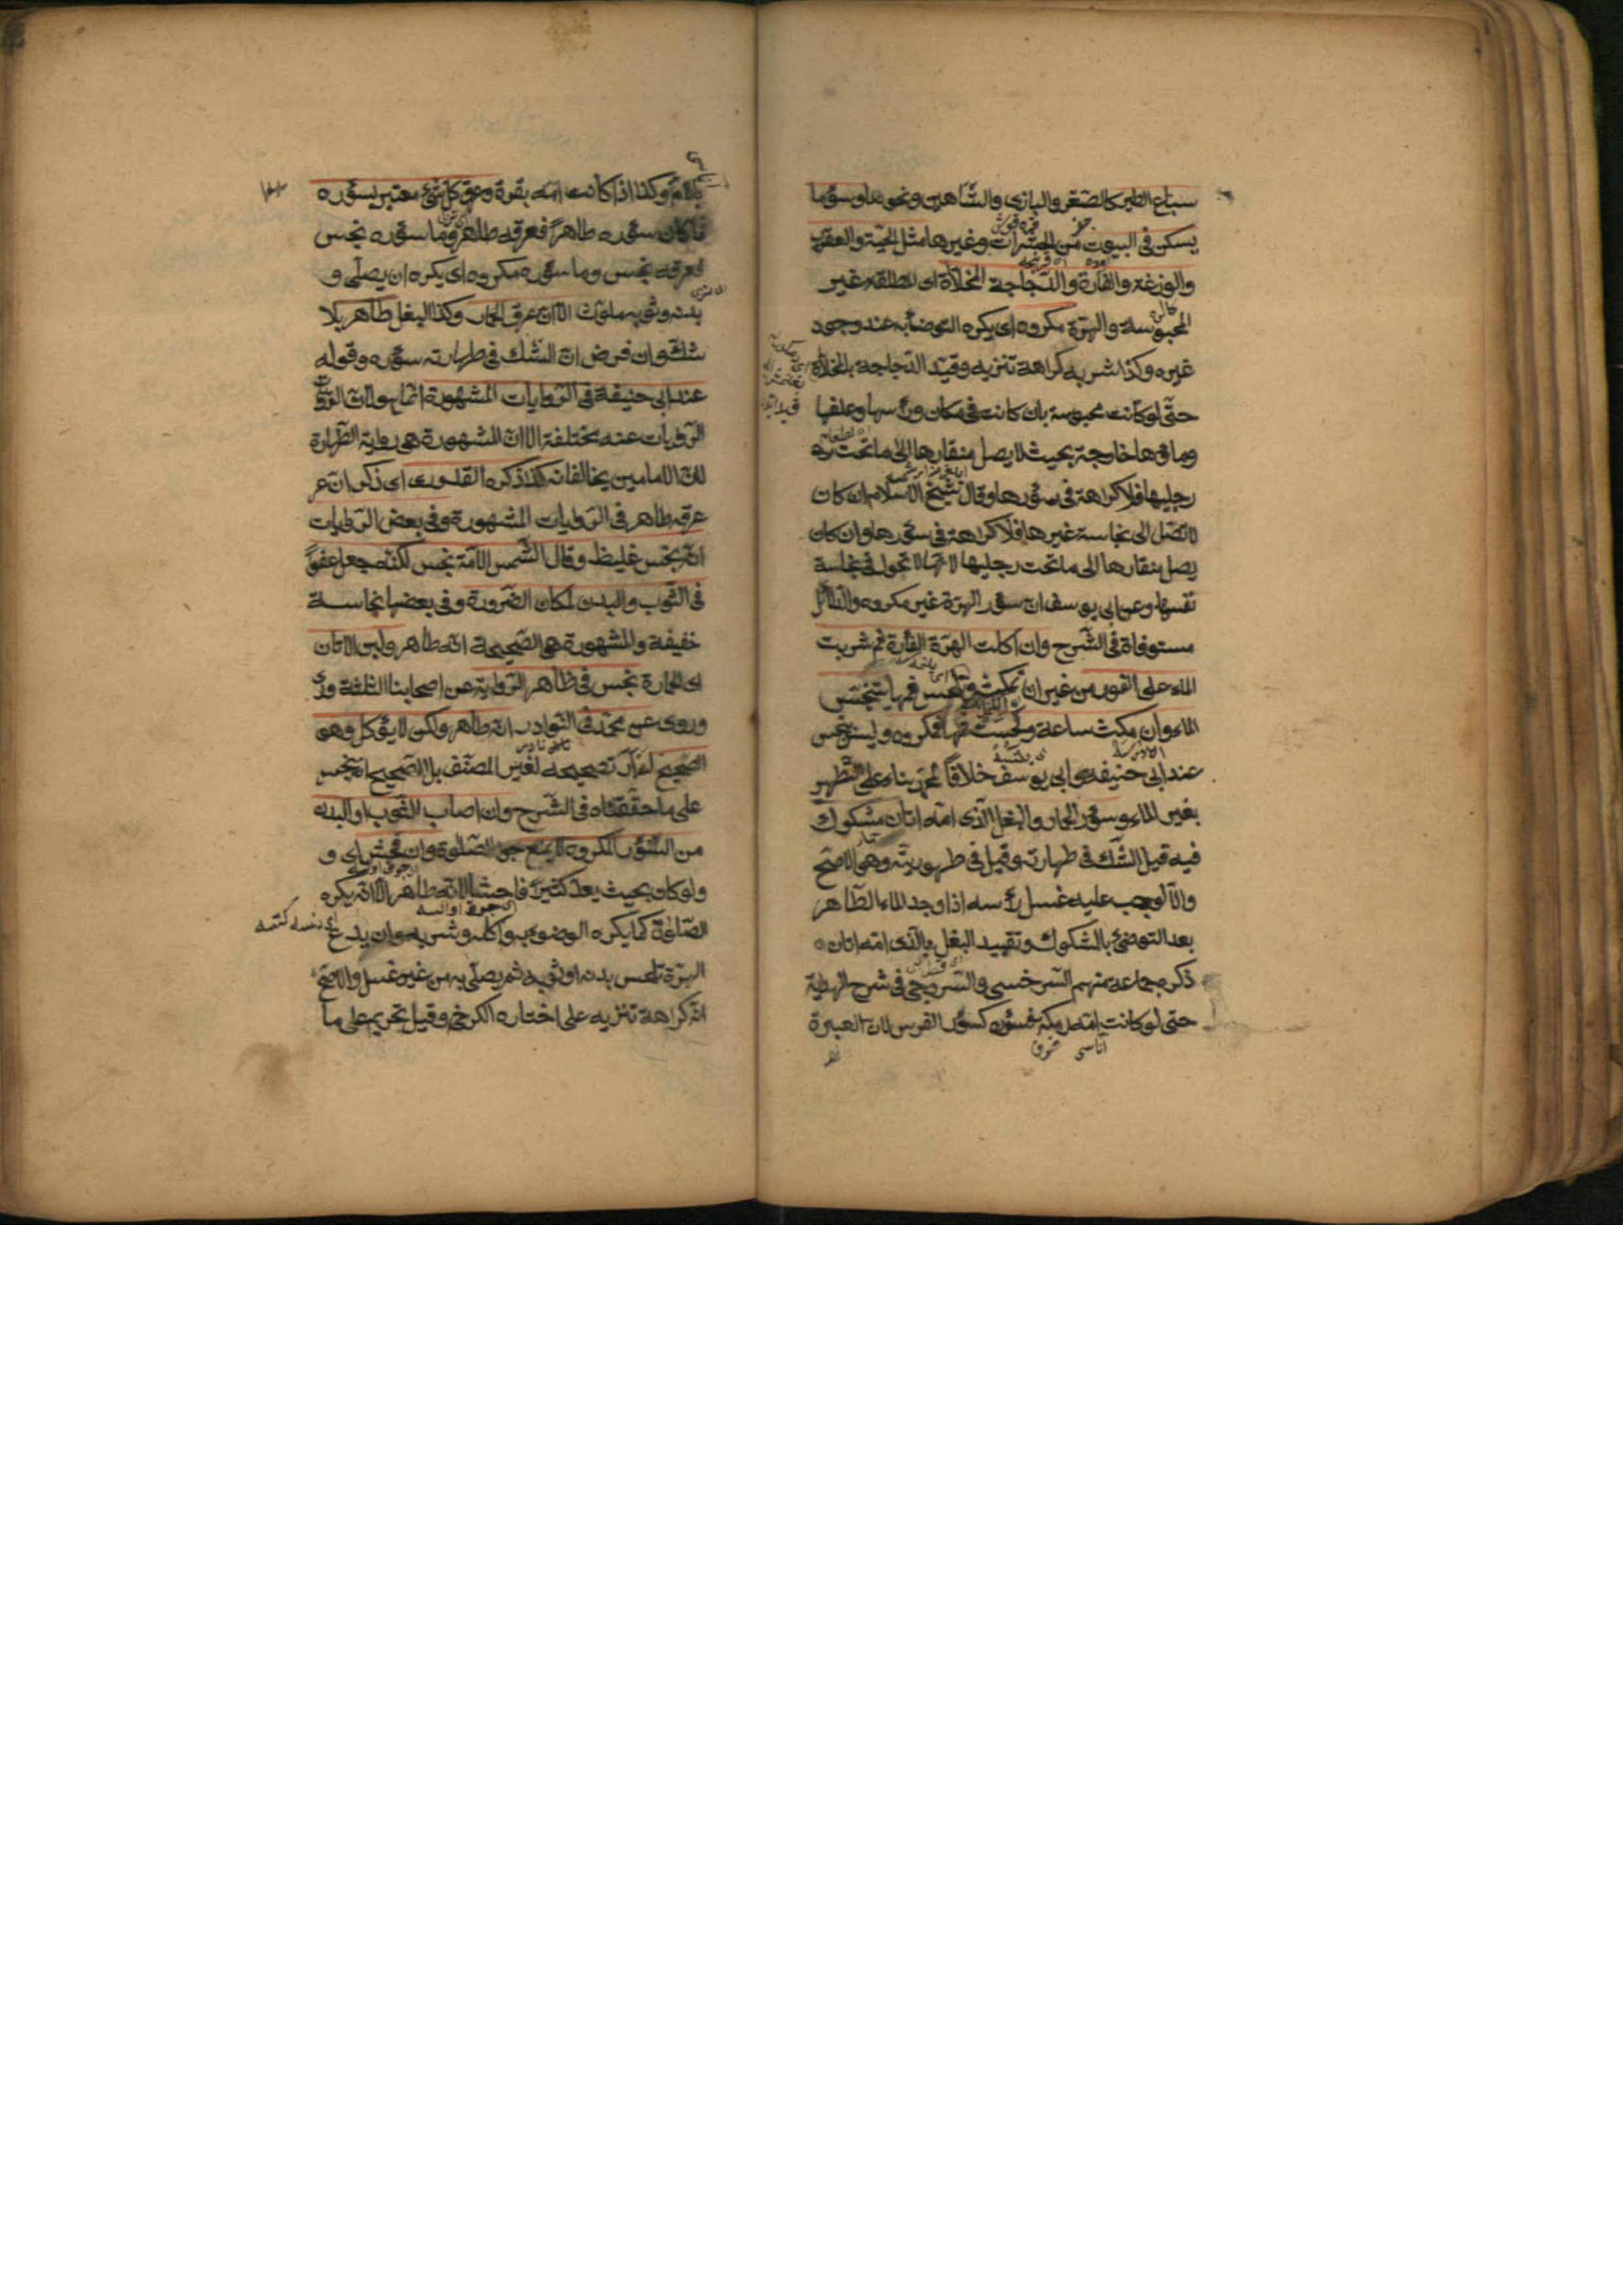 سباع الطير كالصقر والبازى والشاهين ونحوها وسؤر ما
يسكن فى البيوت من الحشرات وغيرها مثل الحية والعقرب
والوزغة والفارة والدجاجة المخلاة اى المطلقة غير
المحبوسة والهرة مكروه اى يكره التوضأ به عند وجود
غيره وكذا شربه كراهة تنزيه وقيد الدجاجة بالمخلاة
حتى لو كانت محبوسة بان كانت فى مكان ورأسها وعلفها
وماؤها خارجة بحيث لا يصل منقارها الى ما تحت
رجليها فلا كراهة فى سؤرها وقال شيخ الاسلام ان كان
لا تصل الى نجاسة غيرها فلا كراهة فى سؤرها وان كان
يصل منقارها الى ما تحت رجليها لانها لا تجول فى نجاسة
نفسها وعن ابى يوسف ان سؤر الهرة غير مكروه والدلائل
مستوفاة فى الشرح وان اكلت الهرة الفأرة ثم شربت
الماء على الفور من غير ان تمكث وتلحس فمها يتنجس
الماء وان مكثت ساعة ولحست فمها فمكروه وليس بنجس
عند ابى حنيفة وابى يوسف خلافا لمحمد بناء على التطهير
بغير الماء وسؤر الحمار والبغل الذى امه اتان مشكوك
فيه قيل الشك فى طهارته وقيل فى طهوريته وهو الاصح
والا لوجب عليه غسل رأسه اذا وجد الماء الطاهر
بعد التوضئ بالمشكوك وتقييد البغل بالذى امه اتان
ذكره جماعة منهم السرخسى والسروجى فى شرح الهداية
حتى لو كانت امه رمكة فسؤره كسؤر الفرس لان العبرة
بالام وكذا اذا كانت امه بقرة وعرق كل شئ معتبر بسؤره
فما كان سؤره طاهرا فعرقه طاهر وما سؤره نجس
فعرقه نجس وما سؤره مكروه اى يكره ان يصلى و
بدنه وثوبه ملوث الا ان عرق الحمار وكذا البغل طاهر بلا
شك وان فرض ان الشك فى طهارته سؤره وقوله
عند ابى حنيفة فى الروايات المشهورة انما هو لان
الروايات عنه مختلفة الا ان المشهورة هى رواية الطهارة
لان الامامين يخالفانه كذا ذكره القدورى اى ذكر ان
عرقه طاهر فى الروايات المشهورة وفى بعض الروايات
انه نجس غليظ وقال الشمس الائمة نجس لكنه جعل عفوا
فى الثوب والبدن لمكان الضرورة وفى بعضها نجاسة
خفيفة والمشهورة هى الصحيحة انه طاهر ولبن الاتان
اى الحمارة نجس فى ظاهر الرواية عن اصحابنا الثلثة
وروى عن محمد فى النوادر انه طاهر ولكن لا يؤكل وهو
الصحيح لم ار تصحيحه لغير المصنف بل الصحيح انه نجس
على ما حققناه فى الشرح وان اصاب الثوب او البدن
من السؤر المكروه لا يمنع جواز الصلوة وان فحش اى و
ولو كان بحيث يعد كثيرا فاحشا لانه طاهر الا انه يكره
الصلوة كما يكره الوضوء به واكله وشربه وان يدع
الهرة تلحس بدنه او ثوبه ثم يصلى به من غير غسل والاصح
انه كراهة تنزيه على اختاره الكرخى وقيل تحريم على ما